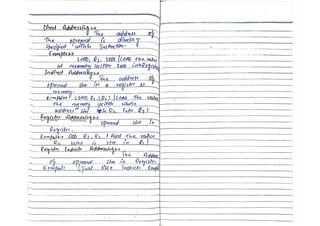 Direct Addressing
The address of
The operand is directly
specified within Instruction.
Example
LOAD, R1, 200 | Load the value
at memory location 200 into Register
Indirect Addressing
The address of
operand is in a register or
memory.
Example LOAD, R1 (R2) | Load the value
the memory location whose
address R2 into R1)
Register Addressing
operand in
Register.
Example ADD R1, R2 | Add the value
R2 in R1)
Register Indirect Addressing
The Address
of operand in Register.
Example (just like Indirect